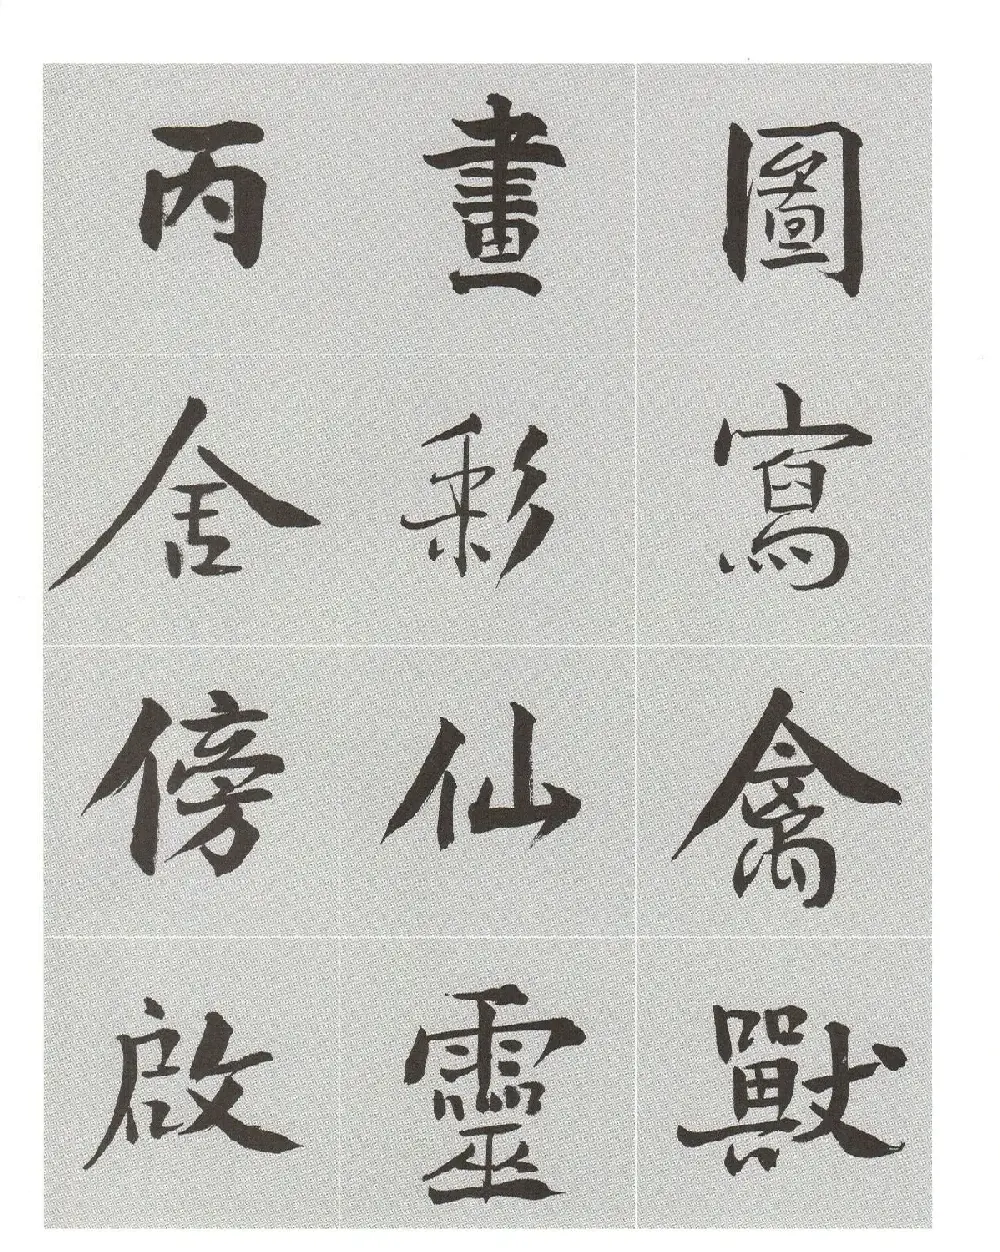 圖寫禽獸
畫彩仙靈
丙舍傍啟